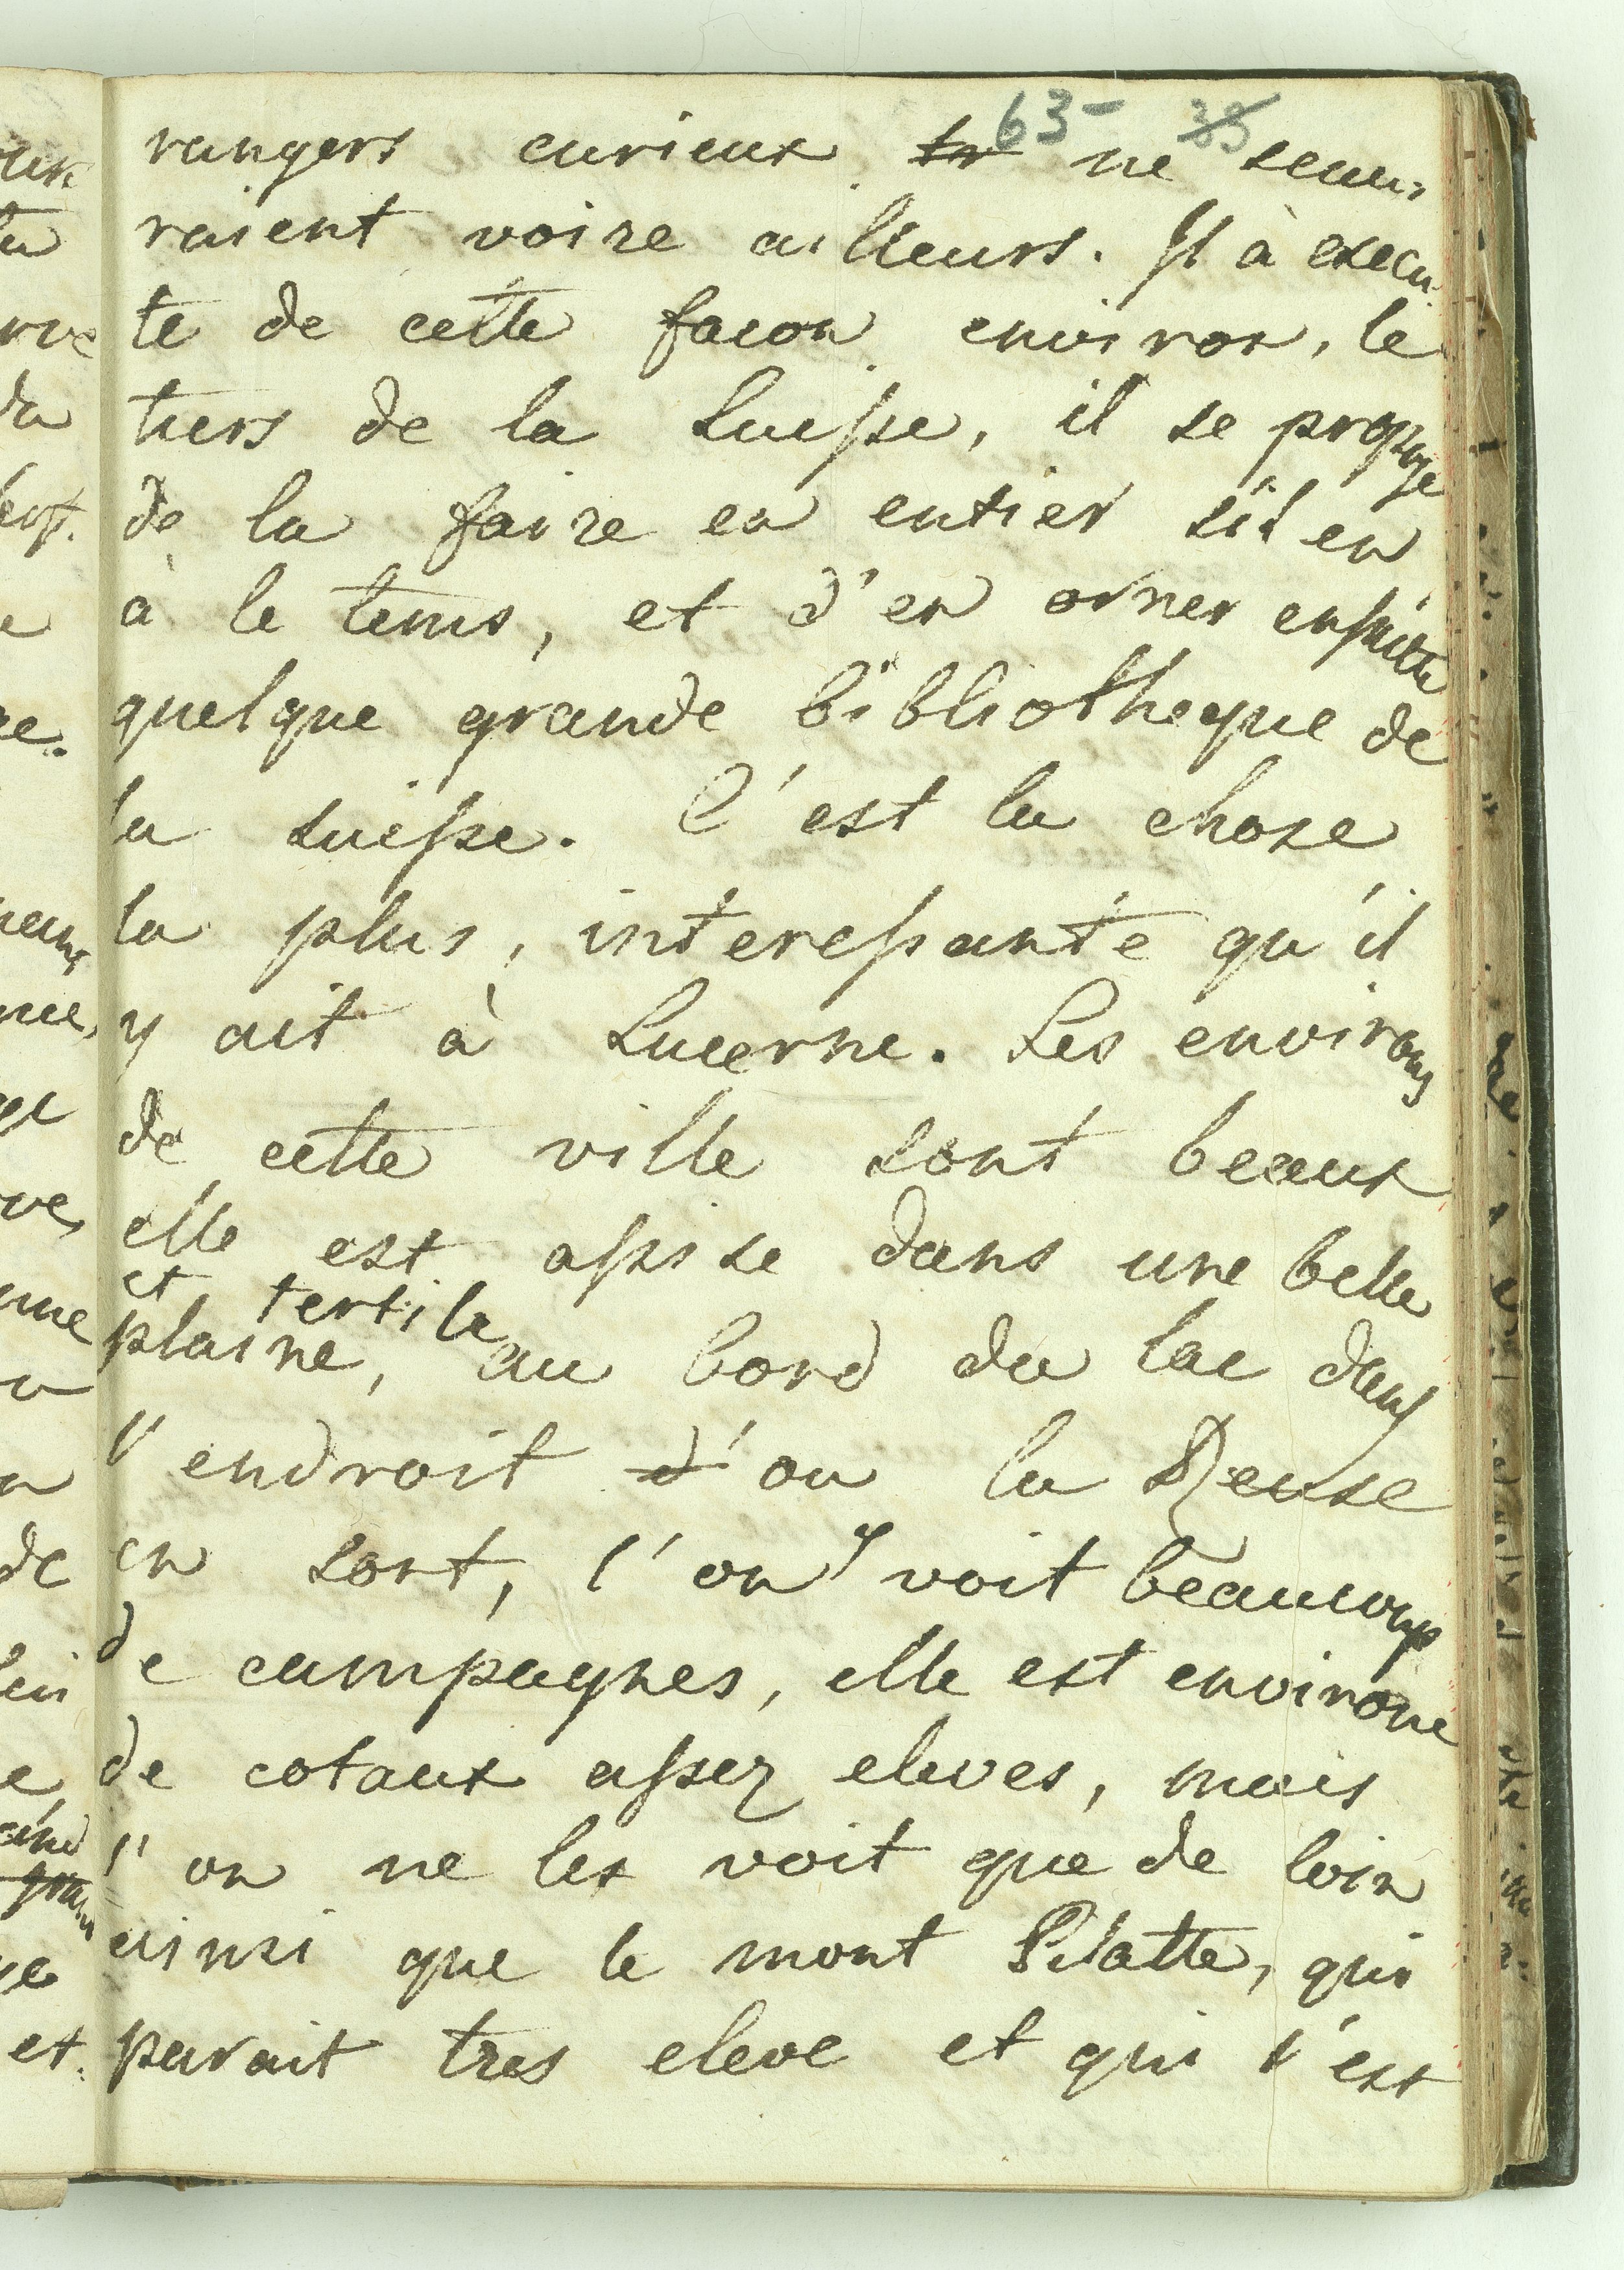 63 - 33
rangers curieux ne seau,
raient voire ailleurs. Il à execu
te de cette facon environ, le
tiers de la Suisse, il se propose
de la faire en entier s'il en
à le tems, et d'en orner ensuitte
quelque grande bibliotheque de
la suisse. C'est la chose
la plus, interessante qu'il
y ait à Lucerne. Les environs
de cette ville sont beaux
elle est assise dans une belle
et fertile
plaine, au bord du lac dans
l'endroit d'ou la Reuse
en sort, l'on y voit beaucoup
de campagnes, elle est environe
de cotaux assez eleves, mais
l'on ne les voit que de loin
ainsi que le mont Pilatte, qui
parait tres eleve et qui s'est